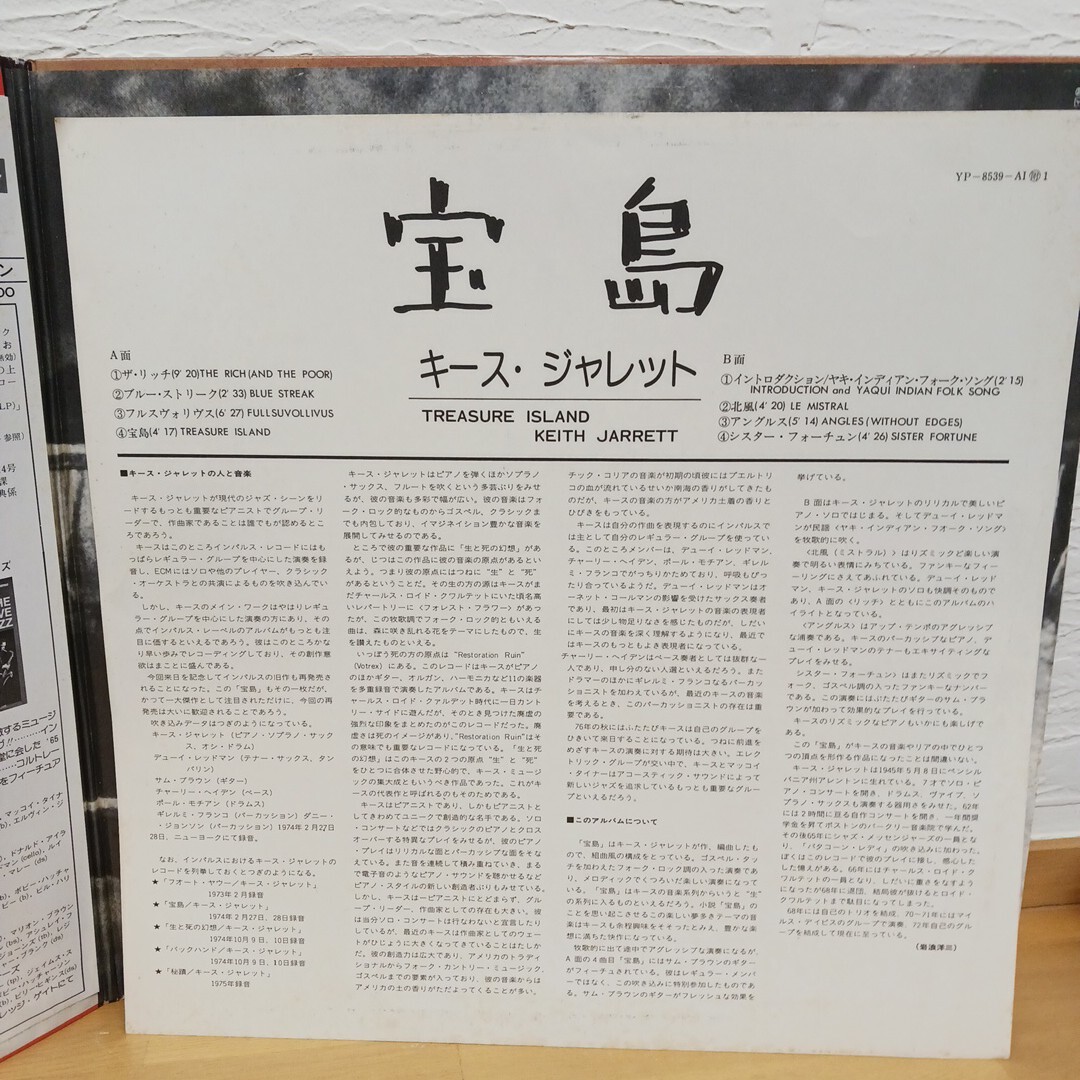 YP-8539-AI ㊞ 1
宝島
キース・ジャレット
TREASURE ISLAND
KEITH JARRETT
A面
①ザ・リッチ(9′20)THE RICH(AND THE POOR)
②ブルー・ストリーク(2′33) BLUE STREAK
③フルスヴォリヴス(6′27) FULLSUVOLLIVUS
④宝島(4′17) TREASURE ISLAND
B面
①イントロダクション/ヤキ・インディアン・フォーク・ソング(2′15)
INTRODUCTION and YAQUI INDIAN FOLK SONG
②北風(4′20) LE MISTRAL
③アングルス(5′14) ANGLES(WITHOUT EDGES)
④シスター・フォーチュン(4′26) SISTER FORTUNE
■キース・ジャレットの人と音楽
キース・ジャレットが現代のジャズ・シーンをリ
ードするもっとも重要なピアニストでグループ・リ
ーダーで、作曲家であることは誰でもが認めるとこ
ろであろう。
キースはこのところインパルス・レコードにはも
っぱらレギュラー・グループを中心にした演奏を録
音し、ECMにはソロや他のプレイヤー、クラシック
・オーケストラとの共演によるものを吹き込んでい
る。
しかし、キースのメイン・ワークはやはりレギュ
ラー・グループを中心にした演奏の方にあり、その
点でインパルス・レーベルのアルバムがもっとも注
目に価するといえるであろう。彼はこのところかな
り早い歩みでレコーディングしており、その創作意
欲はまことに盛んである。
今回来日を記念してインパルスの旧作も再発売さ
れることになった。この「宝島」もその一枚だが、
かつて一大傑作として注目されただけに、今回の再
発売は大いに歓迎されることであろう。
吹き込みデータはつぎのようになっている。
キース・ジャレット(ピアノ・ソプラノ・サック
ス、オシ・ドラム)
デューイ・レッドマン(テナー・サックス、タン
バリン)
サム・ブラウン(ギター)
チャーリー・ヘイデン(ベース)
ポール・モチアン(ドラムス)
ギレルミ・フランコ(パーカッション)ダニー・
ジョンソン(パーカッション)1974年2月27日
28日、ニューヨークにて録音。
なお、インパルスにおけるキース・ジャレットの
レコードを列挙しておくとつぎのようになる。
★「フオート・ヤウー/キース・ジャレット」
1973年2月録音
★「宝島/キース・ジャレット」
1974年2月27日、28日録音
★「生と死の幻想/キース・ジャレット」
1974年10月9日、10日録音
★「バックハンド/キース・ジャレット」
1974年10月9日、10日録音
★「秘蹟/キース・ジャレット」
1975年録音
キース・ジャレットはピアノを弾くほかソプラノ
・サックス、フルートを吹くという多芸ぶりをみせ
るが、彼の音楽も多彩で幅が広い。彼の音楽はフォ
ーク・ロック的なものからゴスペル、クラシックま
でも内包しており、イマジネイション豊かな音楽を
展開してみせるのである。
ところで彼の重要な作品に「生と死の幻想」があ
るが、じつはこの作品に彼の音楽の原点があるとい
えよう。つまり彼の原点にはつねに“生”と“死”
があるということだ。その生の方の源はキースがま
だチャールス・ロイド・クワルテットにいた頃名高
いレパートリーに〈フォレスト・フラワー〉があっ
たが、この牧歌調でフォーク・ロック的ともいえる
曲は、森に咲き乱れる花をテーマにしたもので、生
を讃えたものといえる。
いっぽう死の方の原点は“Restoration Ruin”
(Votrex)にある。このレコードはキースがピアノ
のほかギター、オルガン、ハーモニカなど11の楽器
を多重録音で演奏したアルバムである。キースはチ
ャールス・ロイド・クァルデット時代に一日カント
リー・サイドに遊んだが、そのとき見つけた廃虚の
強烈な印象をまとめたのがこのレコードだった。廃
虚は死のイメージがあり、“Restoration Ruin”はそ
の意味でも重要なレコードになっている。「生と死
の幻想」はこのキースの2つの原点“生”と“死”
をひとつに合体させた野心的で、キース・ミュージ
ックの集大成ともいうべき作品であった。これがキ
ースの代表作と呼ばれるのもそのためである。
キースはピアニストであり、しかもピアニストと
してきわめてユニークで創造的な名手である。ソロ
・コンサートなどではクラシックのピアノとクロス
オーバーする特異なプレイをみせるが、彼のピアノ
・プレイはリリカルな面とパーカッシブな面をそな
えている。また音を連続して積み重ねていき、まる
で電子音のようなピアノ・サウンドを聴かせるなど
ピアノ・スタイルの新しい創造者ぶりもみせている。
しかし、キースはピアニストにとどまらず、グル
ープ・リーダー、作曲家としての存在も大きい。彼
は当分ソロ・コンサートは行なわないと宣言したり
しているが、最近のキースは作曲家としてのウェート
がひじょうに大きくなってきていることはたしか
だ。彼の創造力は広大であり、アメリカのトラディ
ショナルからフォーク・カントリー・ミュージック、
ゴスペルまでの要素が入っており、彼の音楽からは
アメリカの土の香りがただよってくることが多い。
チック・コリアの音楽が初期の頃彼にはプエルトリ
コの血が流れているせいか南海の香りがしてきたも
のだが、キースの音楽の方がアメリカ土着の香りと
ひびきをもっている。
キースは自分の作曲を表現するのにインパルスで
は主として自分のレギュラー・グループを使ってい
る。このところメンバーは、デューイ・レッドマン、
チャーリー・ヘイデン、ポール・モチアン、ギレル
ミ・フランコでがっちりかためており、呼吸もぴっ
たり合っているようだ。デューイ・レッドマンはオ
ーネット・コールマンの影響を受けたサックス奏者
であり、最初はキース・ジャレットの音楽の表現者
にしては少し物足りなさを感じたものだが、しだい
にキースの音楽を深く理解するようになり、最近で
はキースのもっともよき表現者になっている。
チャーリー・ヘイデンはベース奏者としては抜群な一
人であり、申し分のない人選といえるだろう。また
ドラマーのほかにギレルミ・フランコなるパーカッ
ショニストを加わえているが、最近のキースの音楽
を考えるとき、このパーカッショニストの存在は重
要である。
76年の秋にはふたたびキースは自己のグループを
ひきいて来日することになっている。つねに前進を
めざすキースの演奏に対する期待は大きい。エレク
トリック・グループが多い中で、キースとマッコイ
・タイナーはアコースティック・サウンドによって
新しいジャズを追求しているもっとも重要なグルー
プといえるだろう。
■このアルバムについて
「宝島」はキース・ジャレットが作、編曲したも
ので、組曲風の構成をとっている。ゴスペル・タッ
チを加わえたフォーク・ロック調の入った演奏であ
り、メロディックでくつろいだ楽しい演奏になって
いる。「宝島」はキースの音楽系列からいうと“生”
の系列に入るものといえるだろう。小説「宝島」の
ことを思い起こさせるこの楽しい夢多きテーマの音
楽はキースも余程興味をそそったとみえ、豊かな楽
想に満ちた快作になっている。
牧歌的に出て途中でアグレッシブな演奏になるが、
A面の4曲目「宝島」にはサム・ブラウンのギター
がフィーチャされている。彼はレギュラー・メンバ
ーではなく、この吹き込みに特別参加したものであ
る。サム・ブラウンのギターがフレッシュな効果を
挙げている。
B面はキース・ジャレットのリリカルで美しいピ
アノ・ソロではじまる。そしてデューイ・レッドマ
ンが民謡〈ヤキ・インディアン・フオーク・ソング〉
を牧歌的に吹く。
〈北風(ミストラル)〉はリズミックど楽しい演
奏で明るい表情にみちている。ファンキーなフィー
リングにさえてあふれている。デューイ・レッド
マン、キース・ジャレットのソロも快調そのもので
あり、A面の〈リッチ〉とともにこのアルバムのハ
イライトとなっている。
〈アングルス〉はアップ・テンポのアグレッシブ
な演奏である。キースのパーカッシブなピアノ、デ
ューイ・レッドマンのテナーもエキサイティングな
プレイをみせる。
シスター・フォーチュン〉はまたリズミックでフ
ォーク、ゴスペル調の入ったファンキーなナンバー
である。この演奏にはふたたびギターのサム・ブラ
ウンが加わって効果的なプレイを行っている。
キースのリズミックなピアノもいかにも楽しげで
ある。
この「宝島」がキースの音楽やリアの中でひとつ
つの頂点を形作る作品になったことは間違いない。
キース・ジャレットは1945年5月8日にペンシル
バニア州アレントンに生れている。7才でソロ・ピ
アノ・コンサートを開き、ドラムス、ヴァイブ、ソ
プラノ・サックスも演奏する器用さをみせた。62年
には2時間に亘る自作コンサートを開き、一年間奨
学金を昇てボストンのバークリー音楽院で学んだ。
その後65年にシャズ・メッセンジャーズの一員とな
り、「バタコーン・レディ」の吹き込みに加わった。
ぼくはこのレコードで彼のプレイに接し、感心した
した憶えがある。66年にはチャールス・ロイド・ク
ワルテットの一員となり、しだいに重きをなすよう
になったが68年に退団、結局彼が抜けるとロイド・ク
ワルテットまで駄目になってしまった。
68年には自己のトリオを結成、70〜71年にはマイ
ルス・デイビスのグループで演奏、72年自己のグル
ープを結成して現在に至っている。
(岩浪洋三)